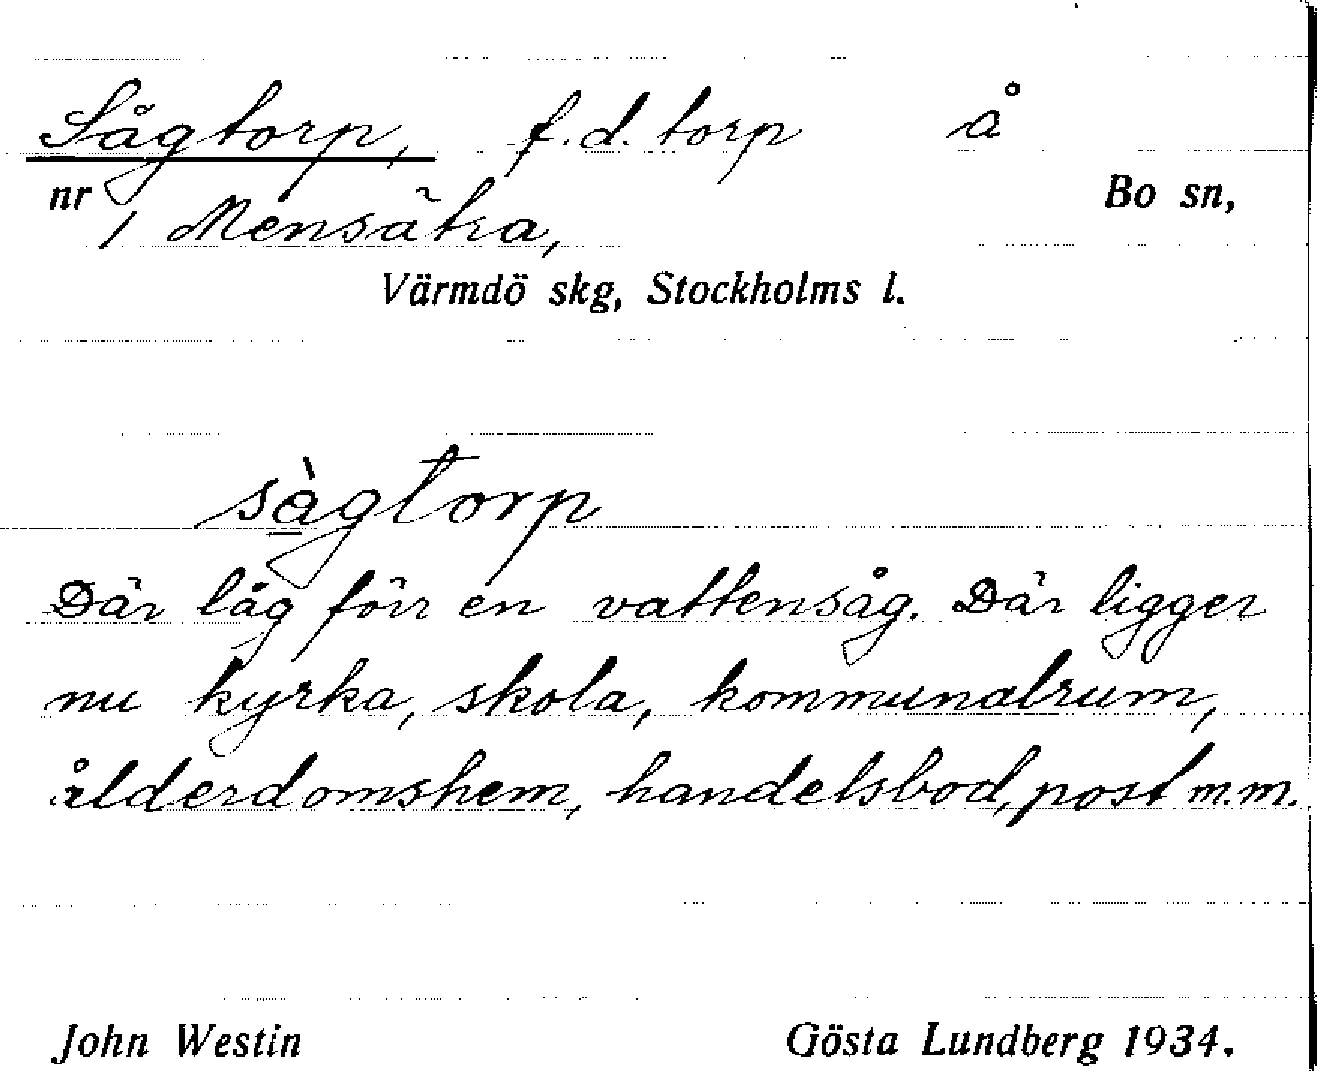 Sågtorp, f.d. torp å
nr 1 Mensätra, Bo sn,
Värmdö skg, Stockholms l.
sàgtorp
Där låg förr en vattensåg. Där ligger
nu kyrka, skola, kommunalrum,
ålderdomshem, handelsbod, post m.m.
John Westin Gösta Lundberg 1934.